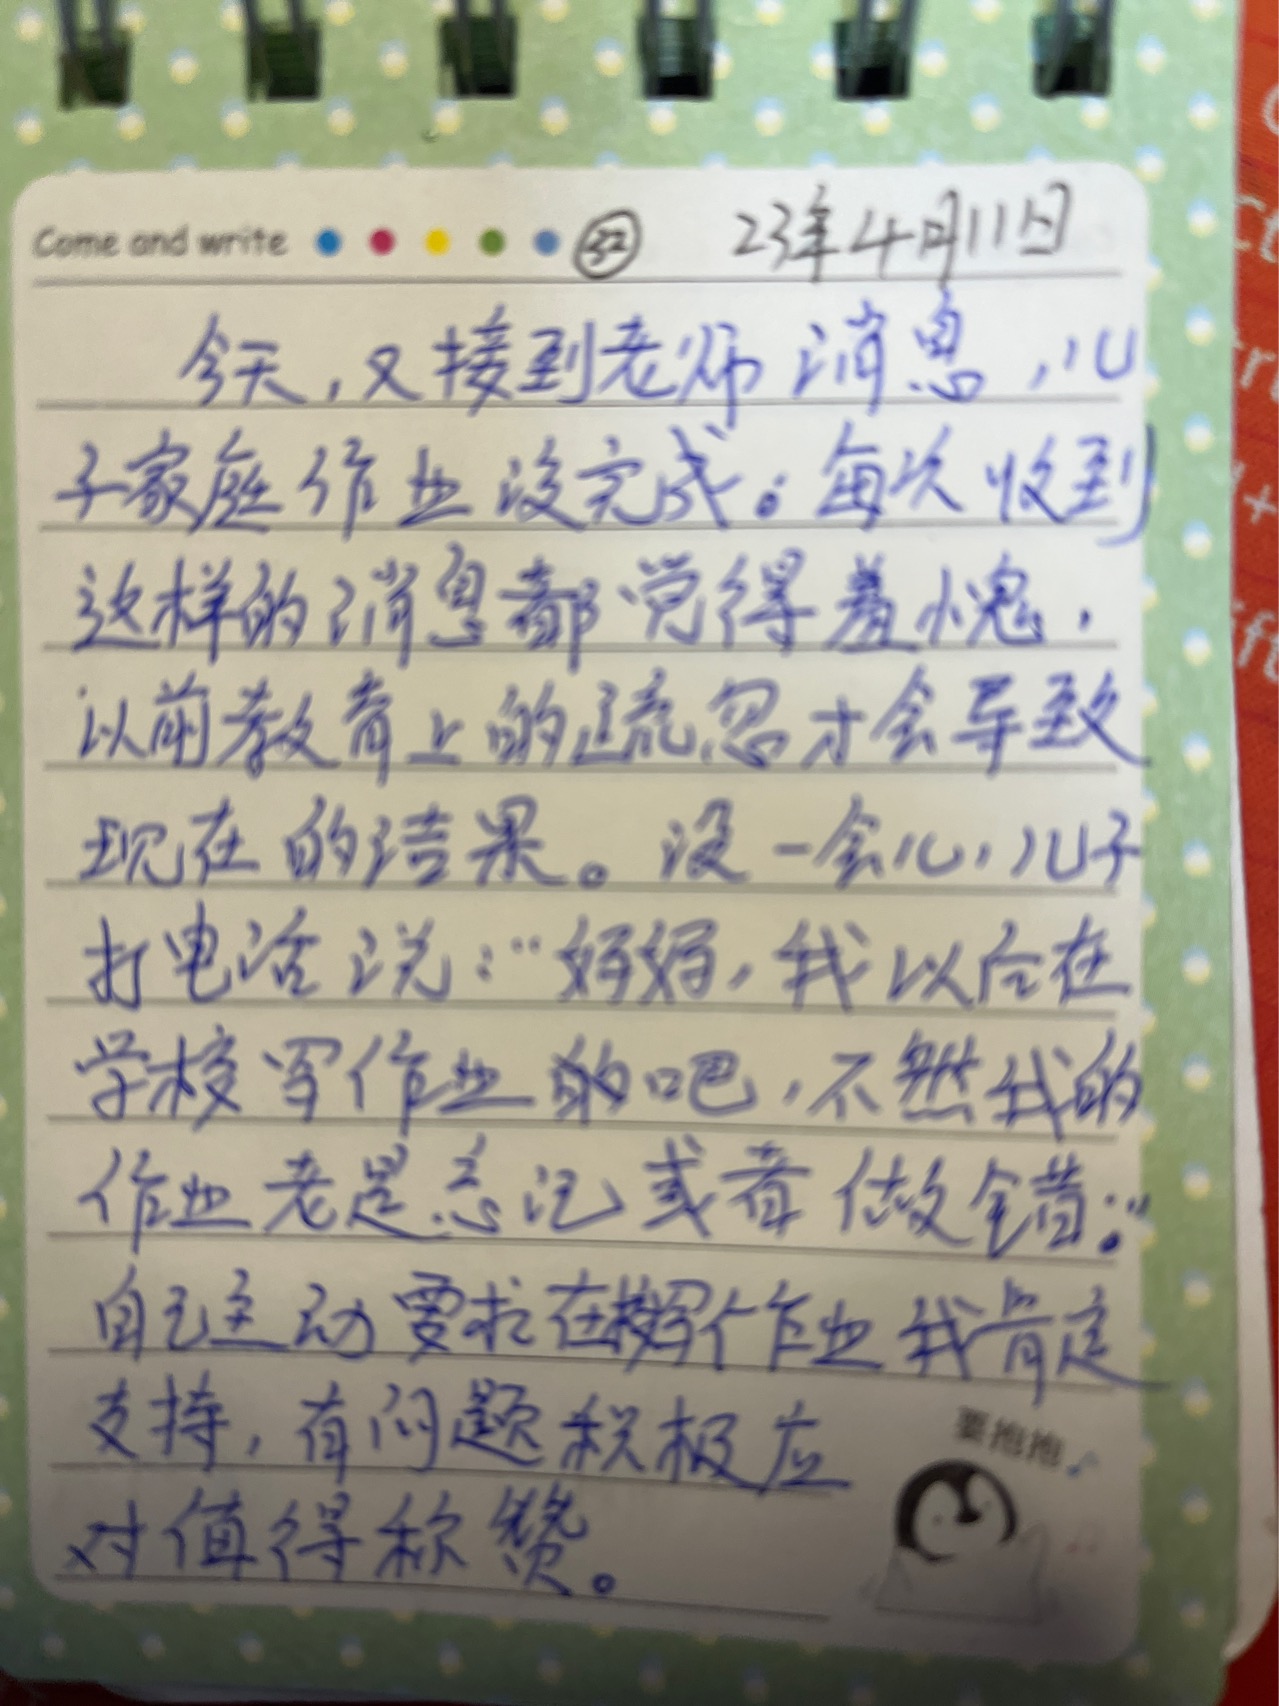 Come and write 32 23年4月11日
今天,又接到老师消息,儿
子家庭作业没完成。每次收到
这样的消息都觉得羞愧,
以前教育上的疏忽才会导致
现在的结果。没一会儿,儿子
打电话说:“妈妈,我以后在
学校写作业的吧,不然我的
作业老是忘记或者做错。”
自己主动要求在校写作业我肯定
支持,有问题积极应
要抱抱
对值得称赞。